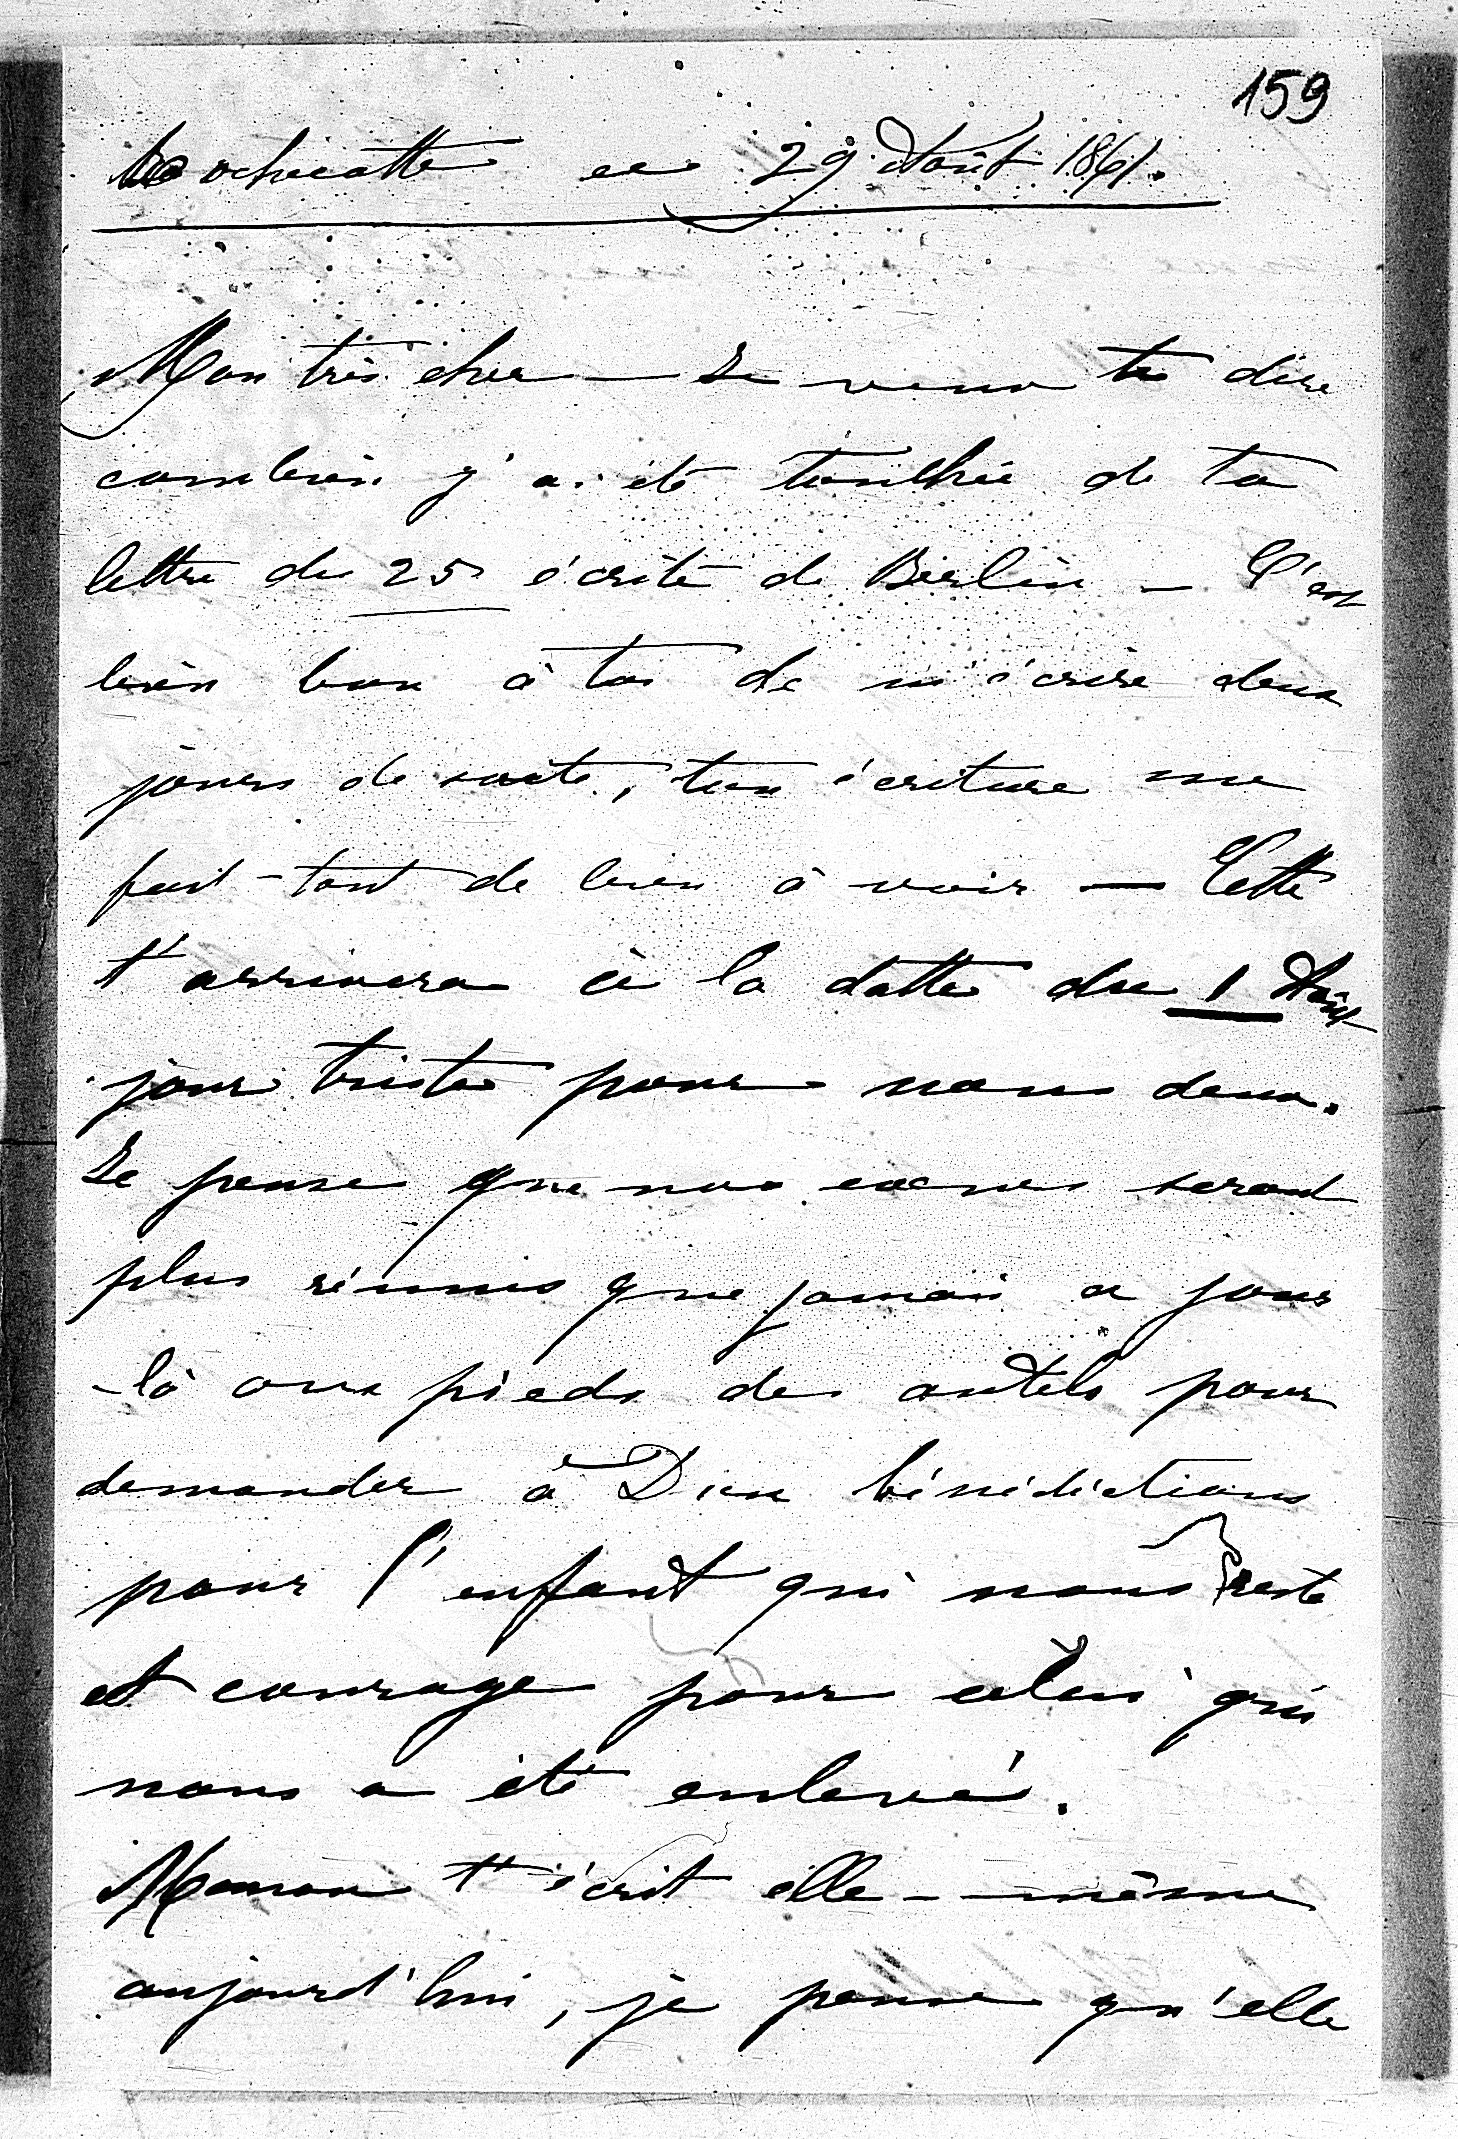 159
Rochecotte ce 29 Août 1861.
Mon très cher — Je viens te dire
combien j'ai été touchée de ta
lettre du 25 écrite de Berlin — C'est
bien bon à toi de m'écrire deux
jours de suite, ton écriture me
fait tant de bien à voir — Cette
t'arrivera à la datte du 1 Août
jour triste pour nous deux.
Je pense que nos cœurs seront
plus réunis que jamais ce jour
-là aux pieds des autels pour
demander à Dieu bénédictions
pour l'enfant qui nous reste
et courage pour celui qui
nous a été enlevé.
Maman t'écrit elle-même
aujourd'hui, je pense qu'elle